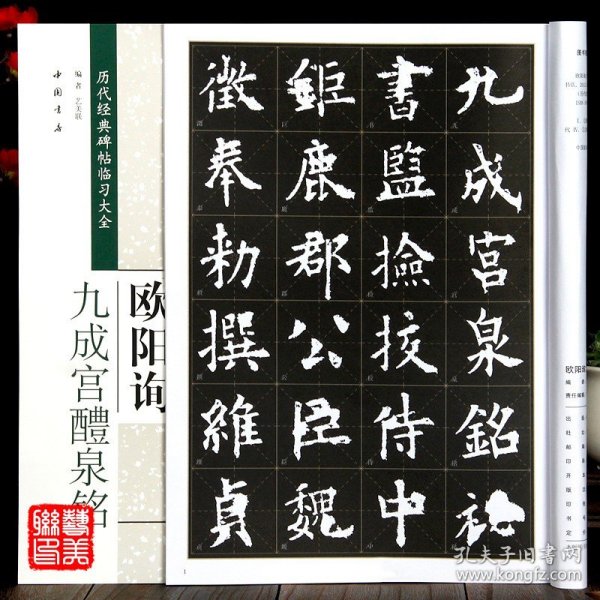 历代经典碑帖临习大全
编者 艺美联
中国书店
欧阳询
九成宫醴泉铭
藝美
聯印
九成宫泉銘祕
書監撿挍侍中
鉅鹿郡公臣魏
徵奉勑撰維貞
1
欧阳询
孔夫子旧书网
www.kongfz.com